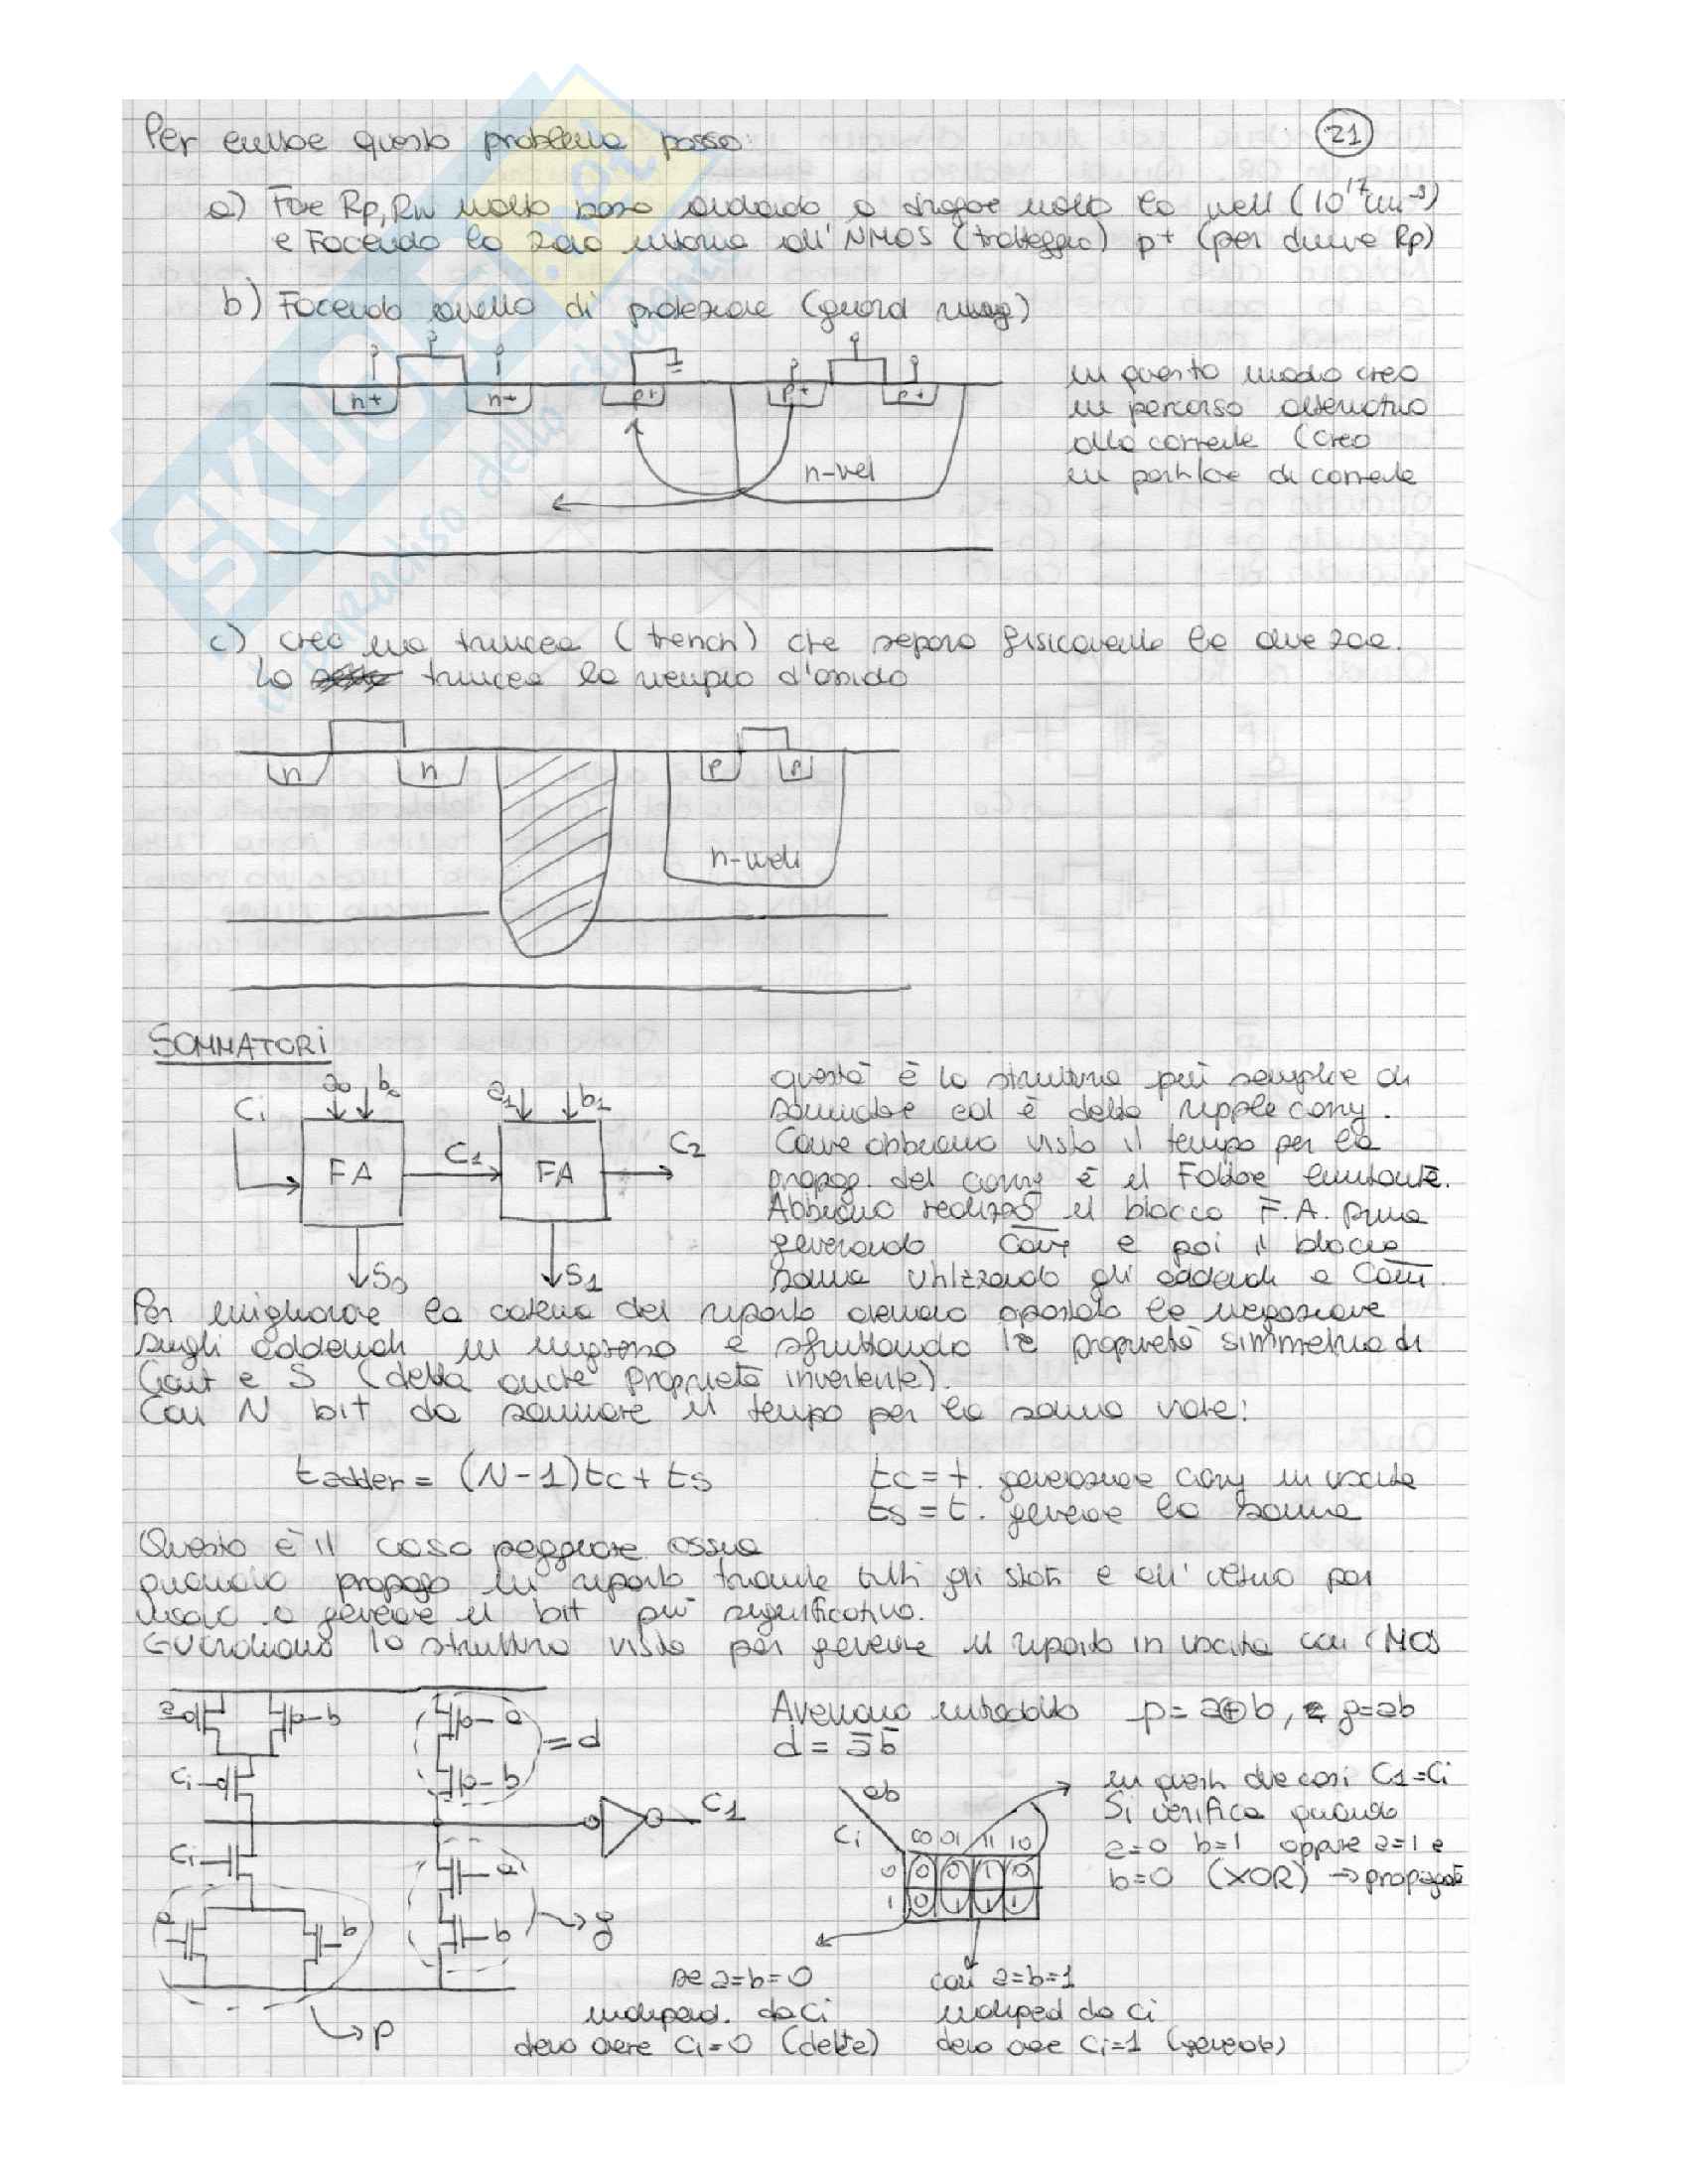 21
Per evitare questo problema posso:
a) Fare Rp, Rw molto basse andando a drogare molto la well (10^17 cm^-3)
e Facendo la zona intorno all'NMOS (tratteggio) p+ (per diminuire Rp)
b) Facendo anello di protezione (guard ring)
n+ n+ p+ p+ p+
n-well
in questo modo creo
un percorso alternativo
alla corrente (creo
un partitore di corrente
c) creo una trincea (trench) che separa fisicamente le due zone.
La trincea la riempio d'ossido
n n p p
n-well
SOMMATORI
Ci a0 b0 a1 b1
FA C1 FA C2
S0 S1
questa è la struttura più semplice di
sommatore ed è detta ripple carry.
Come abbiamo visto il tempo per la
propag. del carry è il Fattore limitante.
Abbiamo realizzato il blocco F.A. prima
generando C̅o̅u̅t̅ e poi il blocco
somma utilizzando gli addendi e C̅o̅u̅t̅.
Per migliorare la catena del riporto avevamo spostato la negazione
sugli addendi in ingresso e sfruttando le proprietà simmetria di
Cout e S (detta anche Proprietà invertente).
Con N bit da sommare il tempo per la somma vale:
tadder = (N-1)tc + ts
tc = t. generazione carry in uscita
ts = t. generare la somma
Questo è il caso peggiore ossia
quando propago un riporto tramite tutti gli stadi e all'ultimo poi
vado a generare il bit più significativo.
Guardiamo la struttura vista per generare il riporto in uscita con CMOS
a b a
Ci b = d
C1
Ci a
a b b → g
→ p
Avevamo introdotto p = a⊕b, e g=ab
d = a̅ b̅
ab
Ci 00 01 11 10
0 0 0 1 0
1 0 1 1 1
in questi due casi C1=Ci
Si verifica quando
a=0 b=1 oppure a=1 e
b=0 (XOR) → propagate
se a=b=0
independ. da Ci
devo avere Ci=0 (delete)
con a=b=1
independ da Ci
devo avere Ci=1 (generate)
SKUOLA.net
il paradiso dello studente